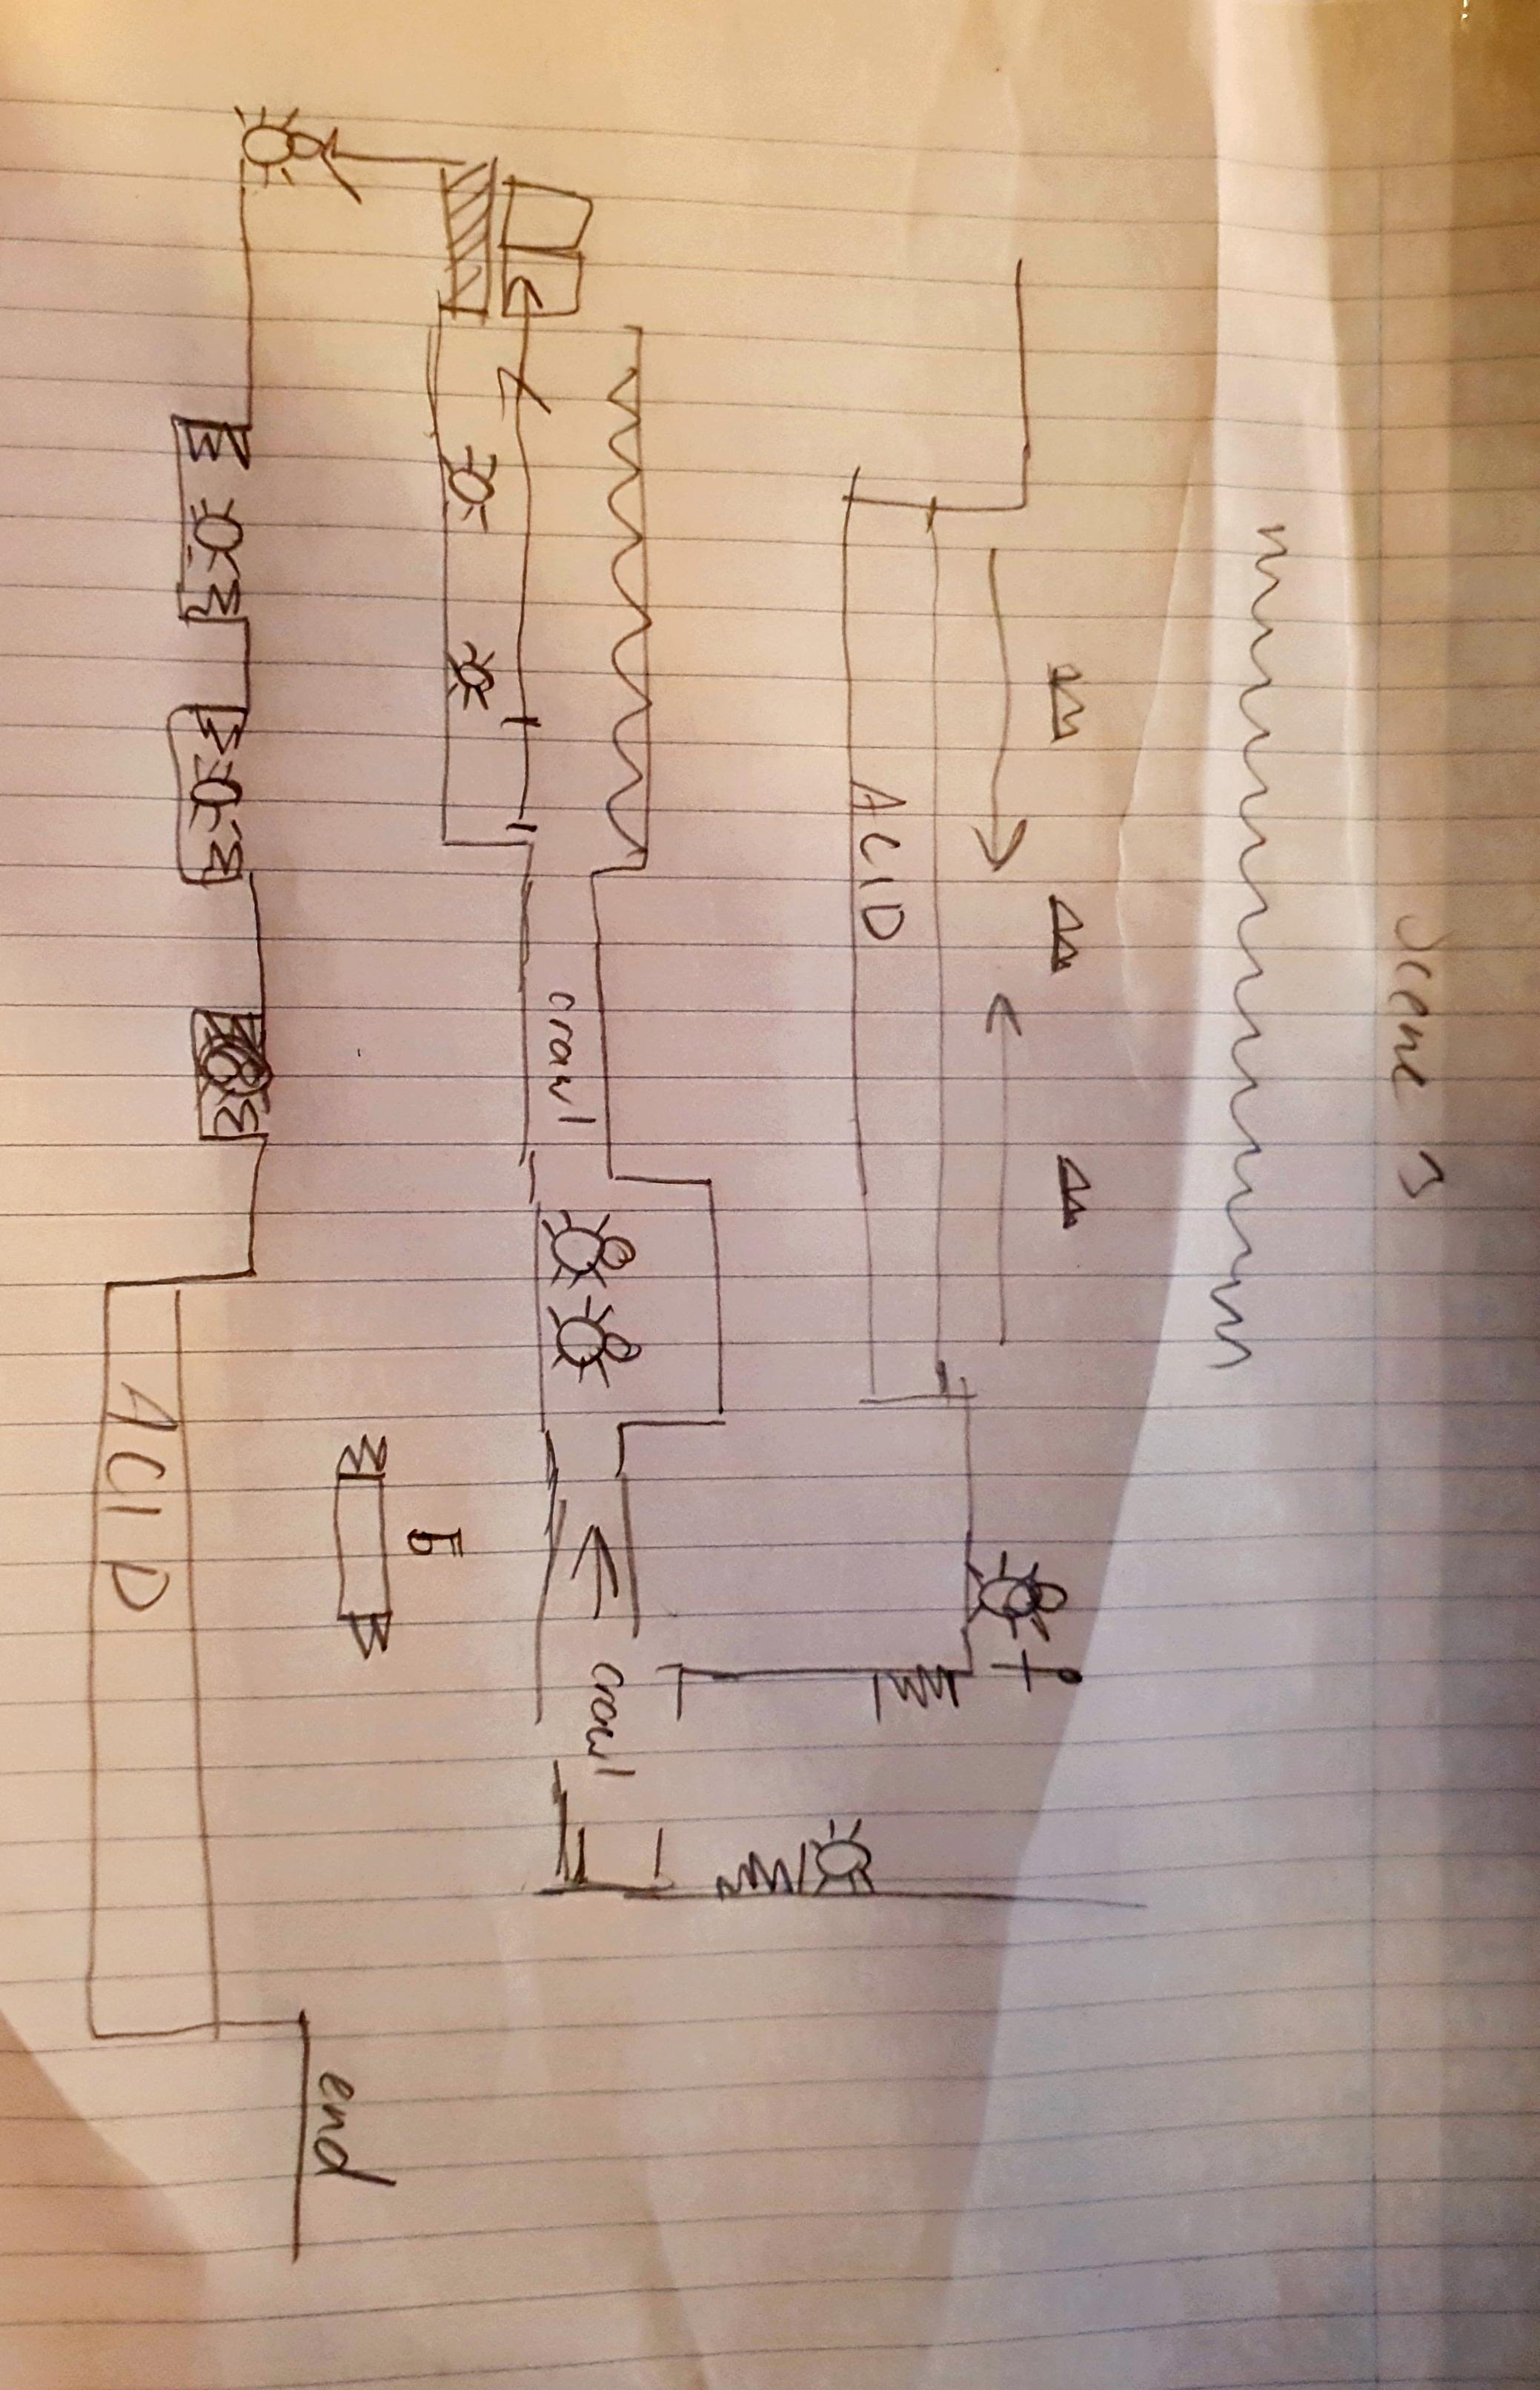 Scene 3
ACID
crawl
crawl
Б
end
ACID